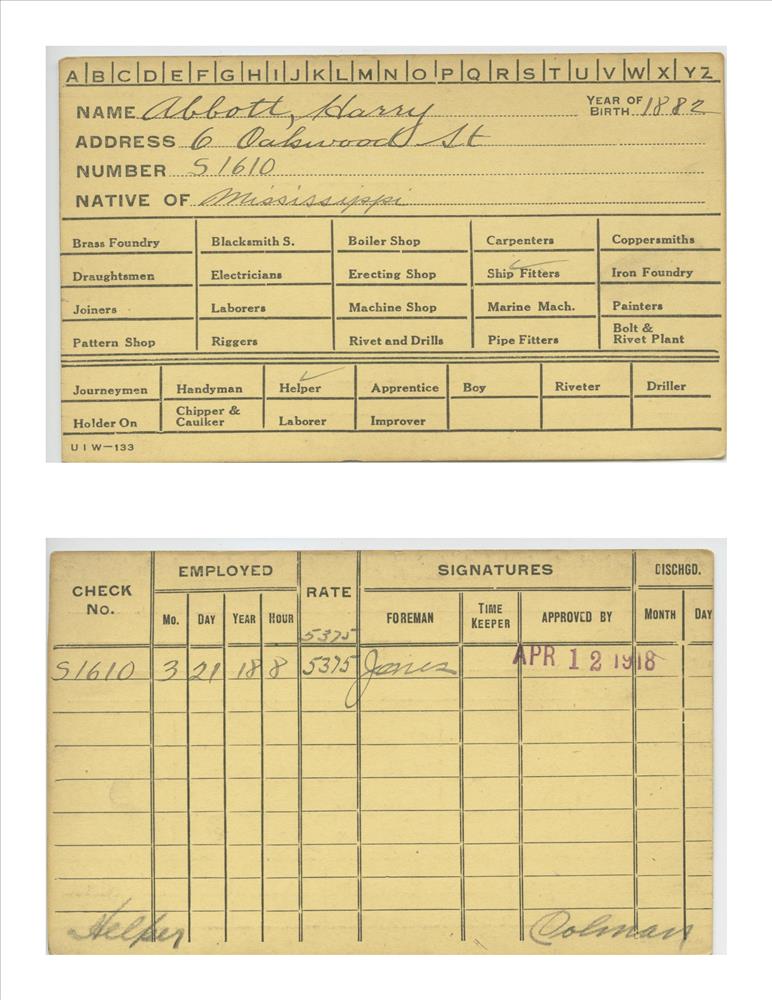 A B C D E F G H I J K L M N O P Q R S T U V W X Y Z
NAME Abbott, Harry YEAR OF BIRTH 1882
ADDRESS 6 Oakwood St
NUMBER S1610
NATIVE OF Mississippi
Brass Foundry Blacksmith S. Boiler Shop Carpenters Coppersmiths
Draughtsmen Electricians Erecting Shop Ship Fitters Iron Foundry
Joiners Laborers Machine Shop Marine Mach. Painters
Pattern Shop Riggers Rivet and Drills Pipe Fitters Bolt & Rivet Plant
Journeymen Handyman Helper Apprentice Boy Riveter Driller
Holder On Chipper & Caulker Laborer Improver
U I W—133
EMPLOYED SIGNATURES DISCHGD.
CHECK No. Mo. DAY YEAR HOUR RATE FOREMAN TIME KEEPER APPROVED BY MONTH DAY
5375
S1610 3 21 18 8 5375 Jones APR 12 1918
Helper Colman